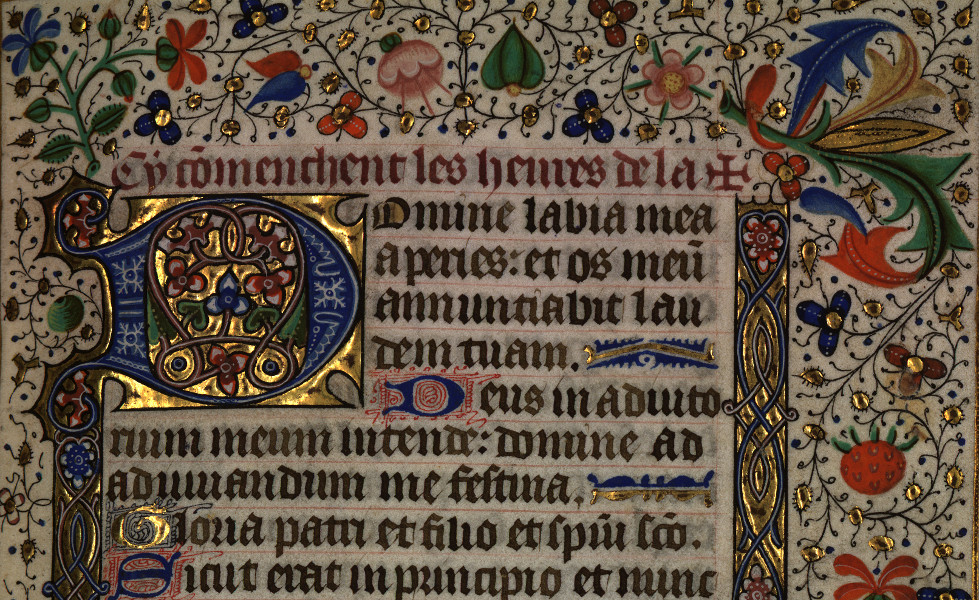 Cy cōmenchent les heures de la ✠
Domine labia mea
aperies: et os meū
annunciabit lau
dem tuam.
Deus in adiuto
rium meum intende: domine ad
adiuuandum me festina.
Gloria patri et filio et spū sco.
Sicut erat in principio et nunc